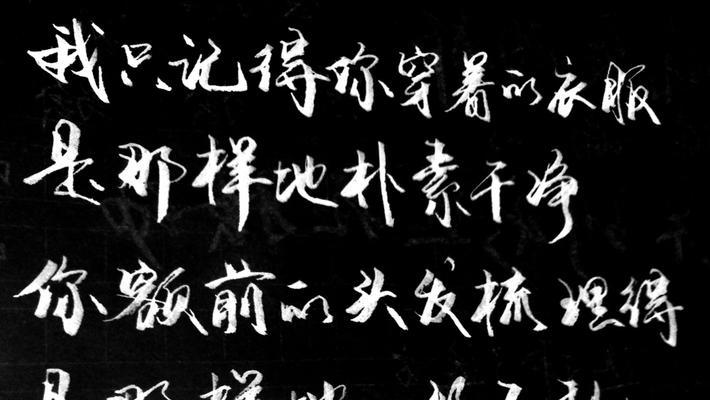 我只记得你穿着的衣服
是那样地朴素干净
你额前的头发梳理得
是那样地